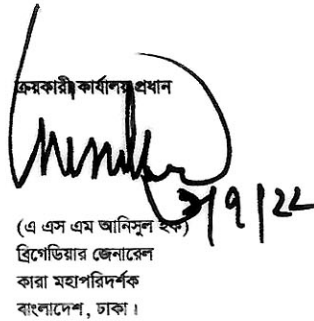 ক্রয়কারী কার্যালয় প্রধান
(এ এস এম আনিসুল হক)
ব্রিগেডিয়ার জেনারেল
কারা মহাপরিদর্শক
বাংলাদেশ, ঢাকা।